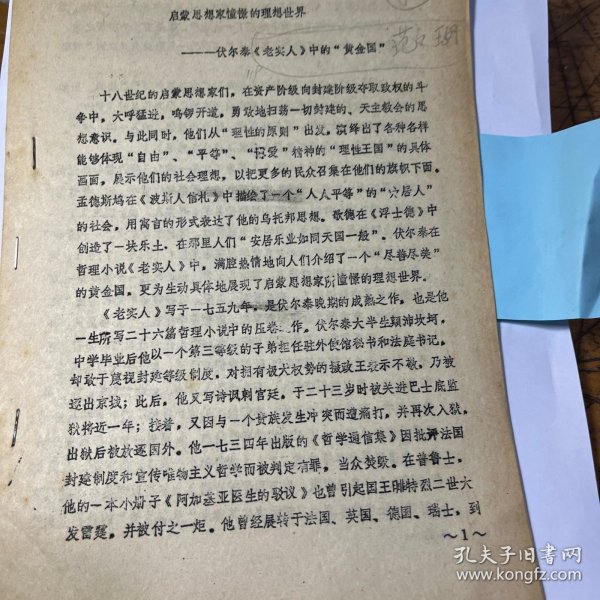 启蒙思想家憧憬的理想世界
———伏尔泰《老实人》中的“黄金国”
十八世纪的启蒙思想家们，在资产阶级向封建阶级夺取政权的斗
争中，大呼猛进，鸣锣开道，勇敢地扫荡一切封建的、天主教会的思
想意识。与此同时，他们从“理性的原则”出发，演绎出了各种各样
能够体现“自由”、“平等”、“博爱”精神的“理性王国”的具体
画面，展示他们的社会理想，以把更多的民众召集在他们的旗帜下面。
孟德斯鸠在《波斯人信札》中描绘了一个“人人平等”的“穴居人”
的社会，用寓言的形式表达了他的乌托邦思想。歌德在《浮士德》中
创造了一块乐土，在那里人们“安居乐业如同天国一般”。伏尔泰在
哲理小说《老实人》中，满腔热情地向人们介绍了一个“尽善尽美”
的黄金国，更为生动具体地展现了启蒙思想家所憧憬的理想世界。
《老实人》写于一七五九年，是伏尔泰晚期的成熟之作，也是他
一生所写二十六篇哲理小说中的压卷之作。伏尔泰大半生颠沛坎坷，
中学毕业后他以一个第三等级的子弟担任驻外使馆秘书和法庭书记，
却敢于蔑视封建等级制度，对拥有极大权势的摄政王表示不敬，乃被
逐出京城；此后，他又写诗讽刺宫廷，于二十三岁时被关进巴士底监
狱将近一年；接着，又因与一个贵族发生冲突而遭痛打，并再次入狱，
出狱后被放逐国外。他一七三四年出版的《哲学通信集》因批评法国
封建制度和宣传唯物主义哲学而被判定有罪，当众焚毁。在普鲁士，
他的一本小册子《阿加基亚医生的驳议》也曾引起国王腓特烈二世大
发雷霆，并被付之一炬。他曾经展转于法国、英国、德国、瑞士，到
～1～
孔夫子旧书网
www.kongfz.com